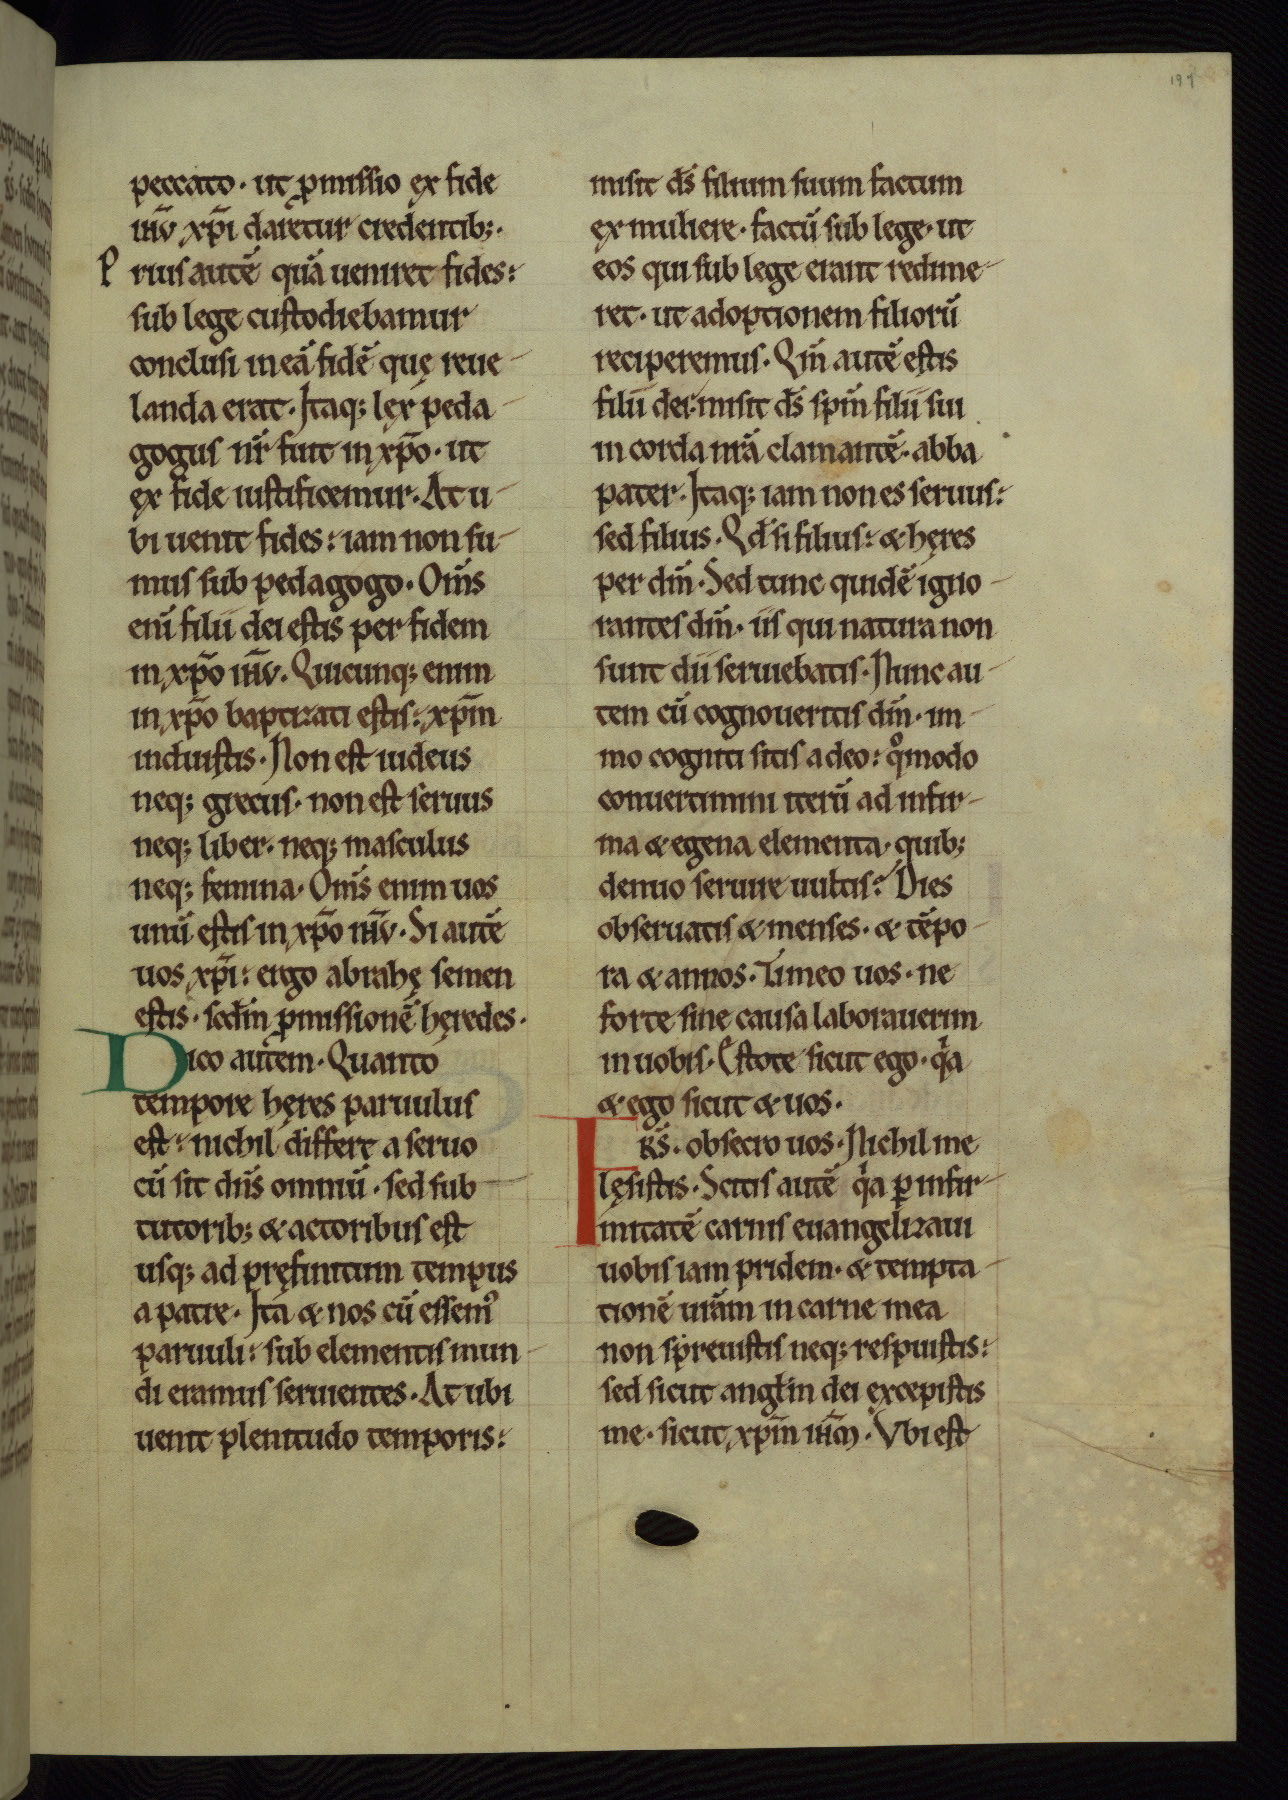 197
peccato · ut ꝓmissio ex fide
ihū xp̄i daretur credentib; ·
Prius autē quā ueniret fides:
sub lege custodiebamur
conclusi in eā fidē quę reue-
landa erat · Itaq; lex peda-
gogus nr̄ fuit in xp̄o · ut
ex fide iustificemur · At u-
bi uenit fides: iam non su-
mus sub pedagogo · Om̄s
enī filii dei estis per fidem
in xp̄o ihū · Quicunq; enim
in xp̄o baptizati estis: xp̄m
induistis · Non est iudeus
neq; grecus · non est seruus
neq; liber · neq; masculus
neq; femina · Om̄s enim uos
unū estis in xp̄o ihū · Si autē
uos xp̄i: ergo abrahę semen
estis · sedm̄ ꝓmissionē hęredes ·
Dico autem · Quanto
tempore hęres paruulus
est: nichil differt a seruo
cū sit dn̄s omniū · sed sub
tutorib; & actoribus est
usq; ad pręfinitum tempus
a patre · Ita & nos cū essem᾿
paruuli: sub elementis mun-
di eramus seruientes · At ubi
uenit plenitudo temporis:
misit ds̄ filium suum factum
ex muliere · factū sub lege · ut
eos qui sub lege erant redime-
ret · ut adoptionem filiorū
reciperemus · Qm̄ autē estis
filii dei: misit ds̄ spm̄ filii sui
in corda nr̄a clamantē · abba
pater · Itaq; iam non es seruus:
sed filius · Qd̄ si filius: & hęres
per dm̄ · Sed tunc quidē igno-
rantes dm̄ · iis qui natura non
sunt dii seruiebatis · Nunc au-
tem cū cognoueritis dm̄ · im-
mo cogniti sitis a deo: qͦmodo
conuertimini iterū ad infir-
ma & egena elementa · quib;
denuo seruire uultis? Dies
obseruatis & menses · & tēpo-
ra & annos · Timeo uos · ne
forte sine causa laborauerim
in uobis · Estote sicut ego · qͥa
& ego sicut & uos ·
Frs̄ · obsecro uos · Nichil me
lęsistis · Scitis autē qͥa ꝑ infir-
mitatē carnis euangelizaui
uobis iam pridem · & tempta-
tionē ur̄am in carne mea
non spreuistis neq; respuistis:
sed sicut angłm dei excepistis
me · sicut xp̄m ihm̄ · Vbi est